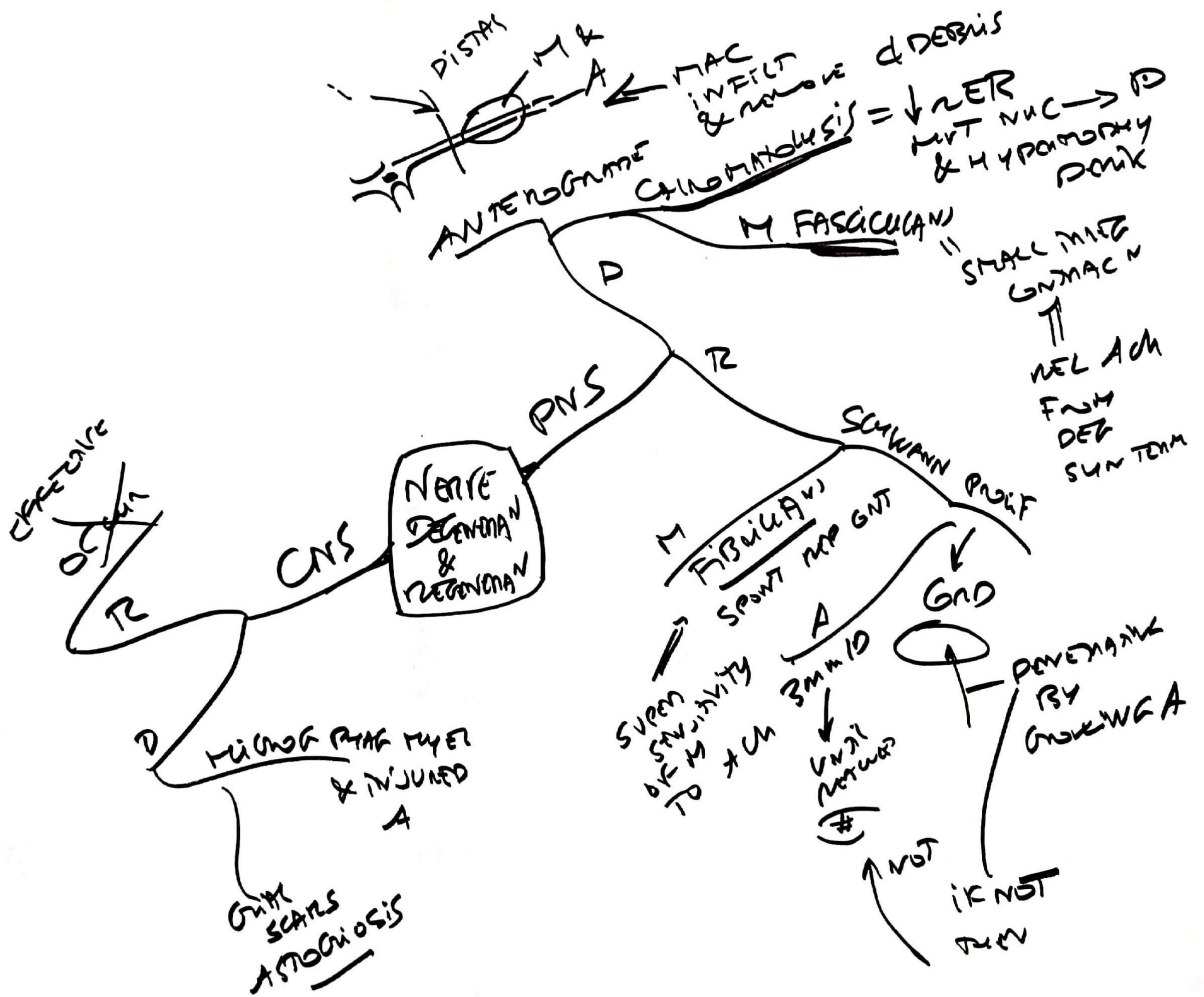 DISTAL
M &
A
MAC
INFILT
& REMOVE
DEBRIS
ANTEROGRADE
CHROMATOLYSIS = ↓ rER
MVT NUC → P
& HYPERTROPHY
PERIK
M FASCICULAN
SMALL IRREG
CONTRAC N
REL ACh
FROM
DEG
SYN TERM
D
R
PNS
NERVE
DEGENERAN
&
REGENERAN
CNS
R
EFFECTIVE
OCCUR
D
MICROG PHAG MYEL
& INJURED
A
GLIAL
SCARS
ASTROGLIOSIS
SCHWANN
PROLIF
M
FIBRILLAN
SPONT REP CNT
SUPER
SENSITIVITY
OF M
TO ACh
A
3mm/D
UNTIL
REACHED
#
CORD
PENETRATING
BY
GROWING A
IF NOT
THEN
NOT